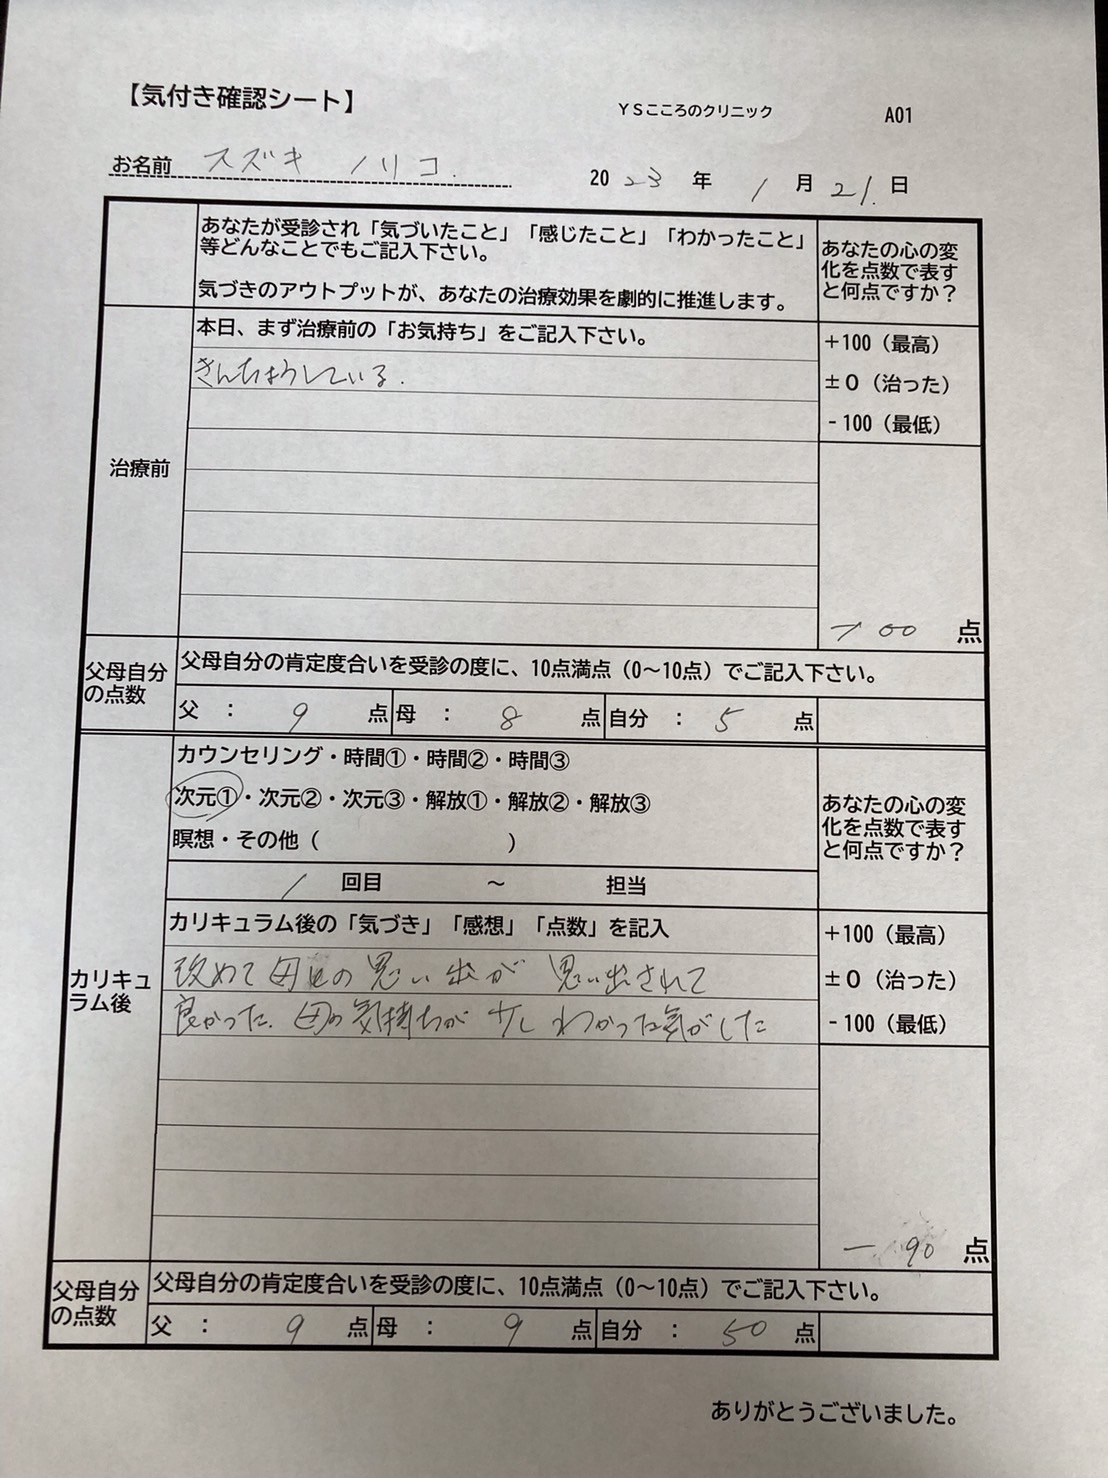 【気付き確認シート】
YSこころのクリニック
A01
お名前 スズキ ノリコ.
2023年 1月21.日
あなたが受診され「気づいたこと」「感じたこと」「わかったこと」
等どんなことでもご記入下さい。
気づきのアウトプットが、あなたの治療効果を劇的に推進します。
あなたの心の変
化を点数で表す
と何点ですか？
治療前
本日、まず治療前の「お気持ち」をご記入下さい。
きんちょうしている.
+100（最高）
±０（治った）
-100（最低）
00 点
父母自分
の点数
父母自分の肯定度合いを受診の度に、10点満点（0～10点）でご記入下さい。
父 ： 9 点 母 ： 8 点 自分 ： 5 点
カリキュ
ラム後
カウンセリング・時間①・時間②・時間③
次元①・次元②・次元③・解放①・解放②・解放③
瞑想・その他（ ）
あなたの心の変
化を点数で表す
と何点ですか？
1 回目 ～ 担当
カリキュラム後の「気づき」「感想」「点数」を記入
改めて母との思い出が 思い出されて
良かった. 母の気持ちが 少しわかった気がした
+100（最高）
±０（治った）
-100（最低）
－90 点
父母自分
の点数
父母自分の肯定度合いを受診の度に、10点満点（0～10点）でご記入下さい。
父 ： 9 点 母 ： 9 点 自分 ： 50 点
ありがとうございました。